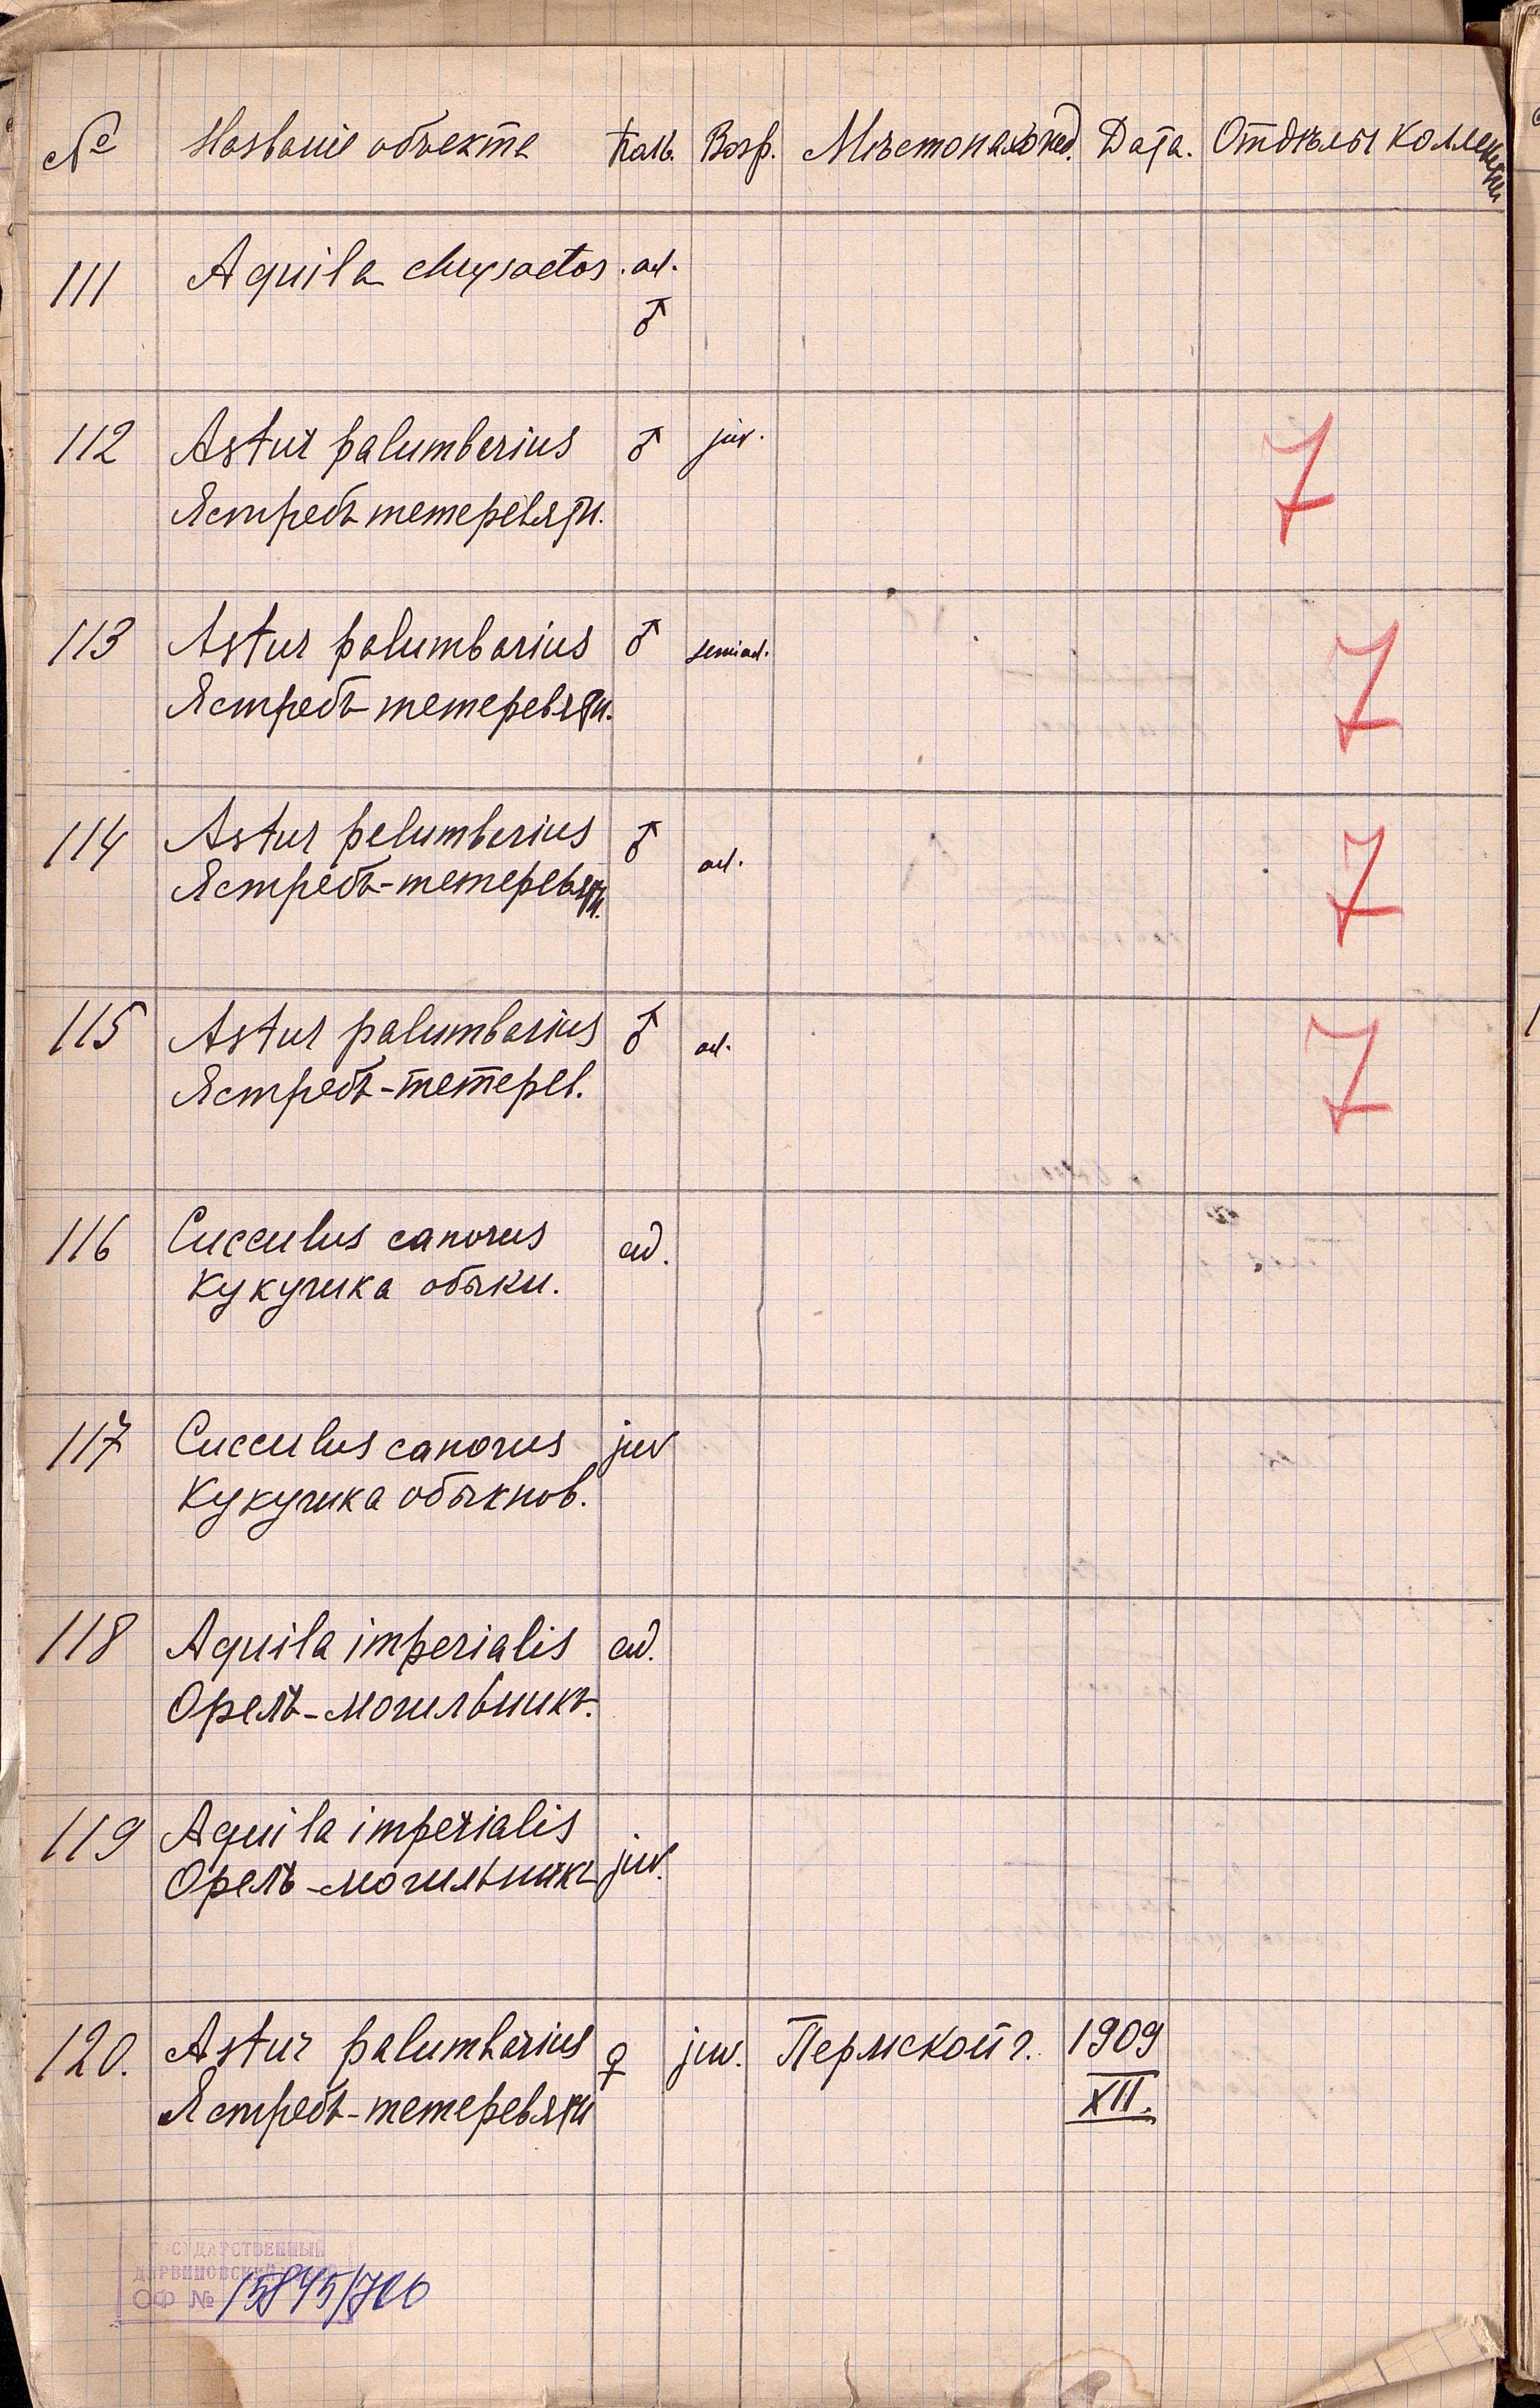 № Названіе объекта Полъ. Возр. Мѣстонахожд. Дата. Отдѣлы коллекціи
111 Aquila chrysaetos. ad.
♂
112 Astur palumbarius ♂ juv. 7
Ястребъ тетеревятн.
113 Astur palumbarius ♂ semiad. 7
Ястребъ-тетеревятн.
114 Astur palumbarius ♂ ad. 7
Ястребъ-тетеревятн.
115 Astur palumbarius ♂ ad. 7
Ястребъ-тетерев.
116 Cucculus canorus ad.
Кукушка обыкн.
117 Cucculus canorus juv
Кукушка обыкнов.
118 Aquila imperialis ad.
Орелъ-могильникъ.
119 Aquila imperialis juv.
Орелъ-могильникъ
120. Astur palumbarius ♀ juv. Пермской г. 1909
Ястребъ-тетеревятн XII.
СУДАРСТВЕННЫЙ
ДАРВИНОВСКИЙ
ОФ №